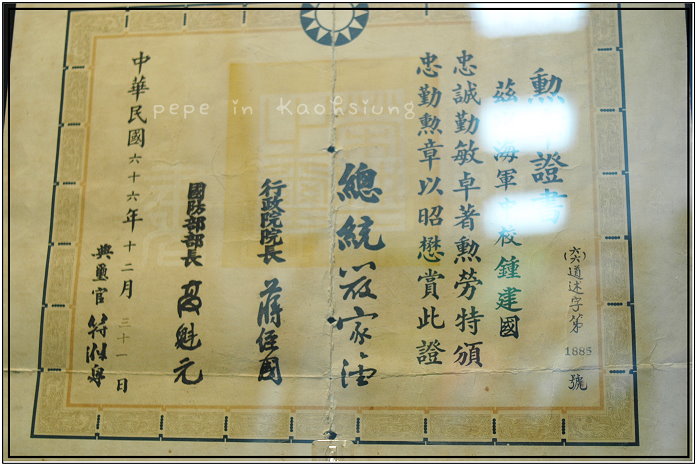 勲章證書
(六六)道述字第1885號
茲 海軍 校鍾建國
忠誠勤敏卓著勲勞特頒
忠勤勲章以昭懋賞此證
總統嚴家淦
行政院院長 蔣經國
國防部部長 高魁元
中華民國六十六年十二月三十一日
典璽官
pepe in Kaohsiung